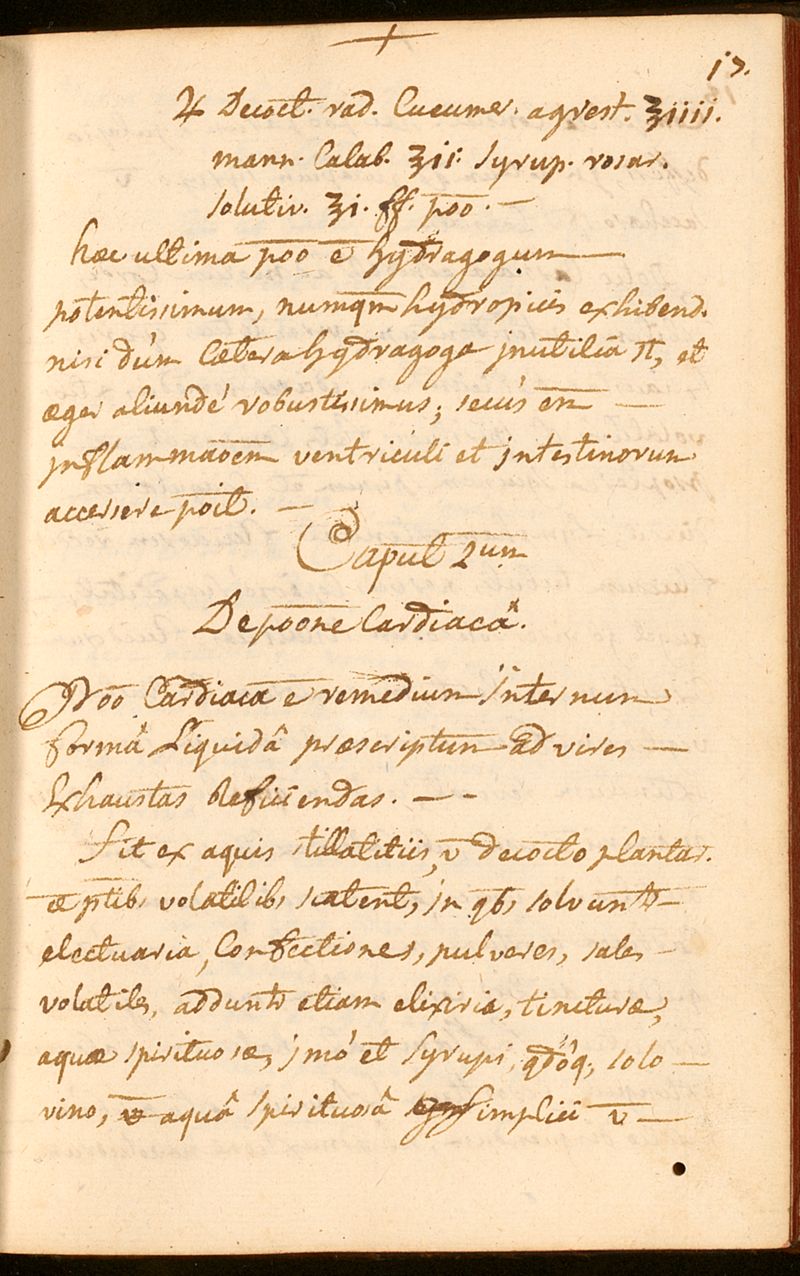 17.
♃ Decoct. rad. Cucumer. agrest. ℥iiii.
mann. Calab. ℥ii. Syrup. rosar.
solutiv. ℥i. ff. pōō. —
hæc ultima pōō ē hydragogum —
potentissimum, numqm̄ hydropicis exhibend.
nisi dúm Cætera hydragoga jnutilia st̄, et
æger aliundé robustissimus; secús en̄ —
jnflammaōem ventriculi et jntestinorum
accersere poit̄. —
Caput 2um
De pōōne Cardiacâ.
Pōō Cardiaca ē remedium internum
formâ Liquidâ præscriptum ad vires —
Exhaustas Reficiendas. — -
fit ex aquis stillatitiis, v̄ decocto plantar.
æ ptib; volatilib; scatent, jn qb; solvuntr —
electuaria, Confectiones, pulveres, sales —
volatiles, adduntr etiam elixiria, tincturæ,
aquæ spirituosæ, jmó et Syrupi, qdōq; solo —
vino, v̄ aquâ spirituosâ simplici v̄ —